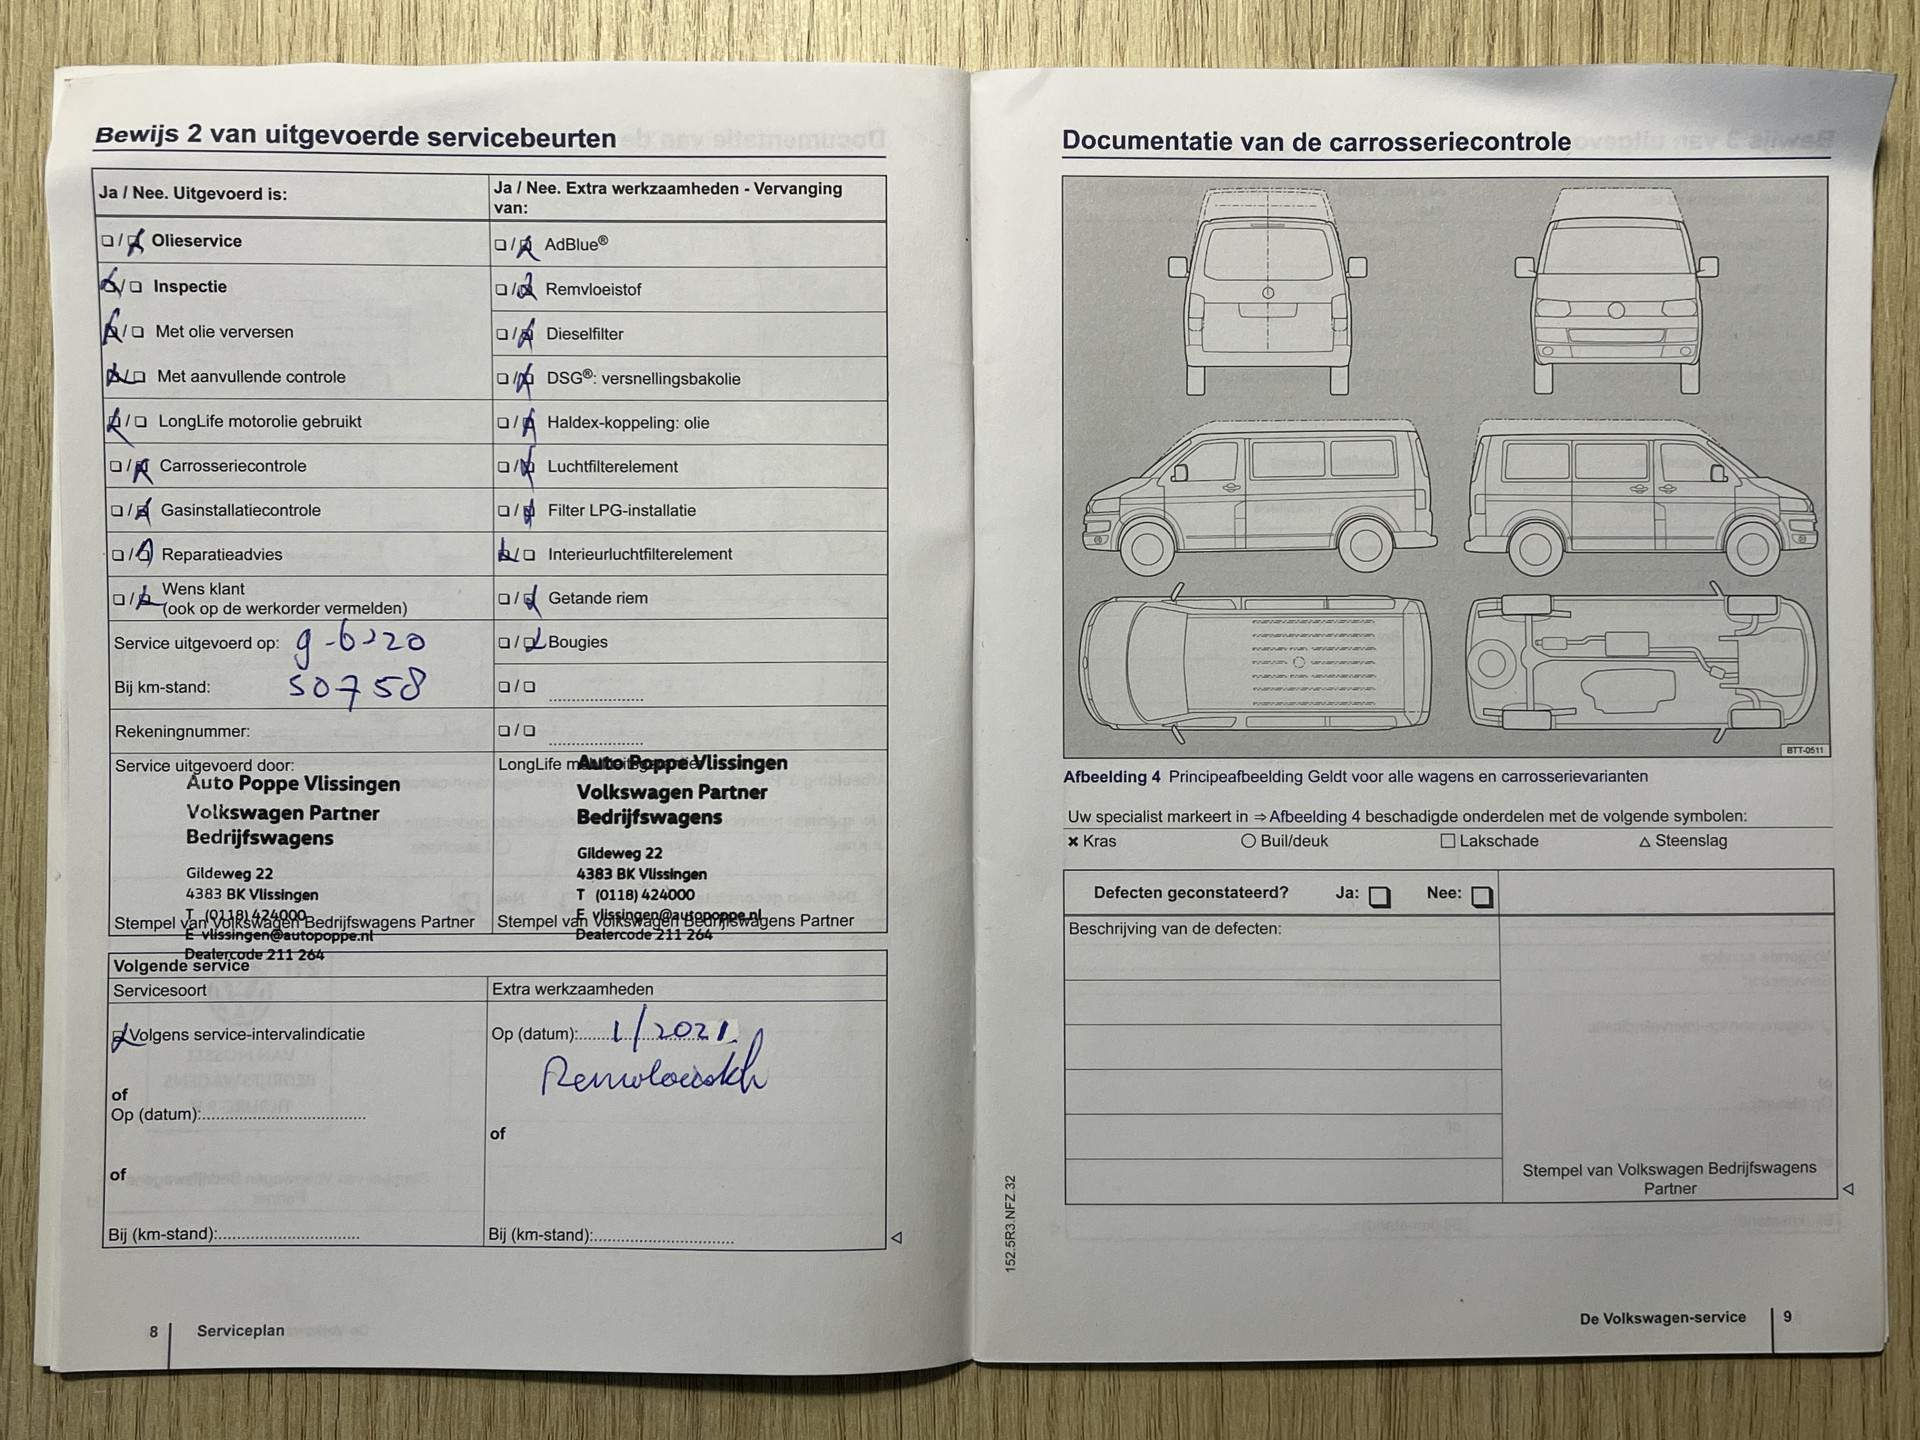 Bewijs 2 van uitgevoerde servicebeurten
Ja / Nee. Uitgevoerd is:
Olieservice
Inspectie
Met olie verversen
Met aanvullende controle
LongLife motorolie gebruikt
Carrosseriecontrole
Gasinstallatiecontrole
Reparatieadvies
Wens klant
(ook op de werkorder vermelden)
Service uitgevoerd op: 9-6-20
Bij km-stand: 50758
Rekeningnummer:
Service uitgevoerd door:
Auto Poppe Vlissingen
Volkswagen Partner
Bedrijfswagens
Gildeweg 22
4383 BK Vlissingen
T (0118) 424000
Stempel van Volkswagen Bedrijfswagens Partner
E vlissingen@autopoppe.nl
Dealercode 211 264
Ja / Nee. Extra werkzaamheden - Vervanging
van:
AdBlue®
Remvloeistof
Dieselfilter
DSG®: versnellingsbakolie
Haldex-koppeling: olie
Luchtfilterelement
Filter LPG-installatie
Interieurluchtfilterelement
Getande riem
Bougies
LongLife
Auto Poppe Vlissingen
Volkswagen Partner
Bedrijfswagens
Gildeweg 22
4383 BK Vlissingen
T (0118) 424000
E vlissingen@autopoppe.nl
Stempel van Volkswagen Bedrijfswagens Partner
Dealercode 211 264
Volgende service
Servicesoort
Volgens service-intervalindicatie
of
Op (datum):
of
Bij (km-stand):
Extra werkzaamheden
Op (datum): 1/2021
of
Bij (km-stand):
8 Serviceplan
Documentatie van de carrosseriecontrole
BTT-0511
Afbeelding 4 Principeafbeelding Geldt voor alle wagens en carrosserievarianten
Uw specialist markeert in ⇒ Afbeelding 4 beschadigde onderdelen met de volgende symbolen:
Kras Buil/deuk Lakschade Steenslag
Defecten geconstateerd? Ja: Nee:
Beschrijving van de defecten:
Stempel van Volkswagen Bedrijfswagens
Partner
152.5R3.NFZ.32
De Volkswagen-service 9